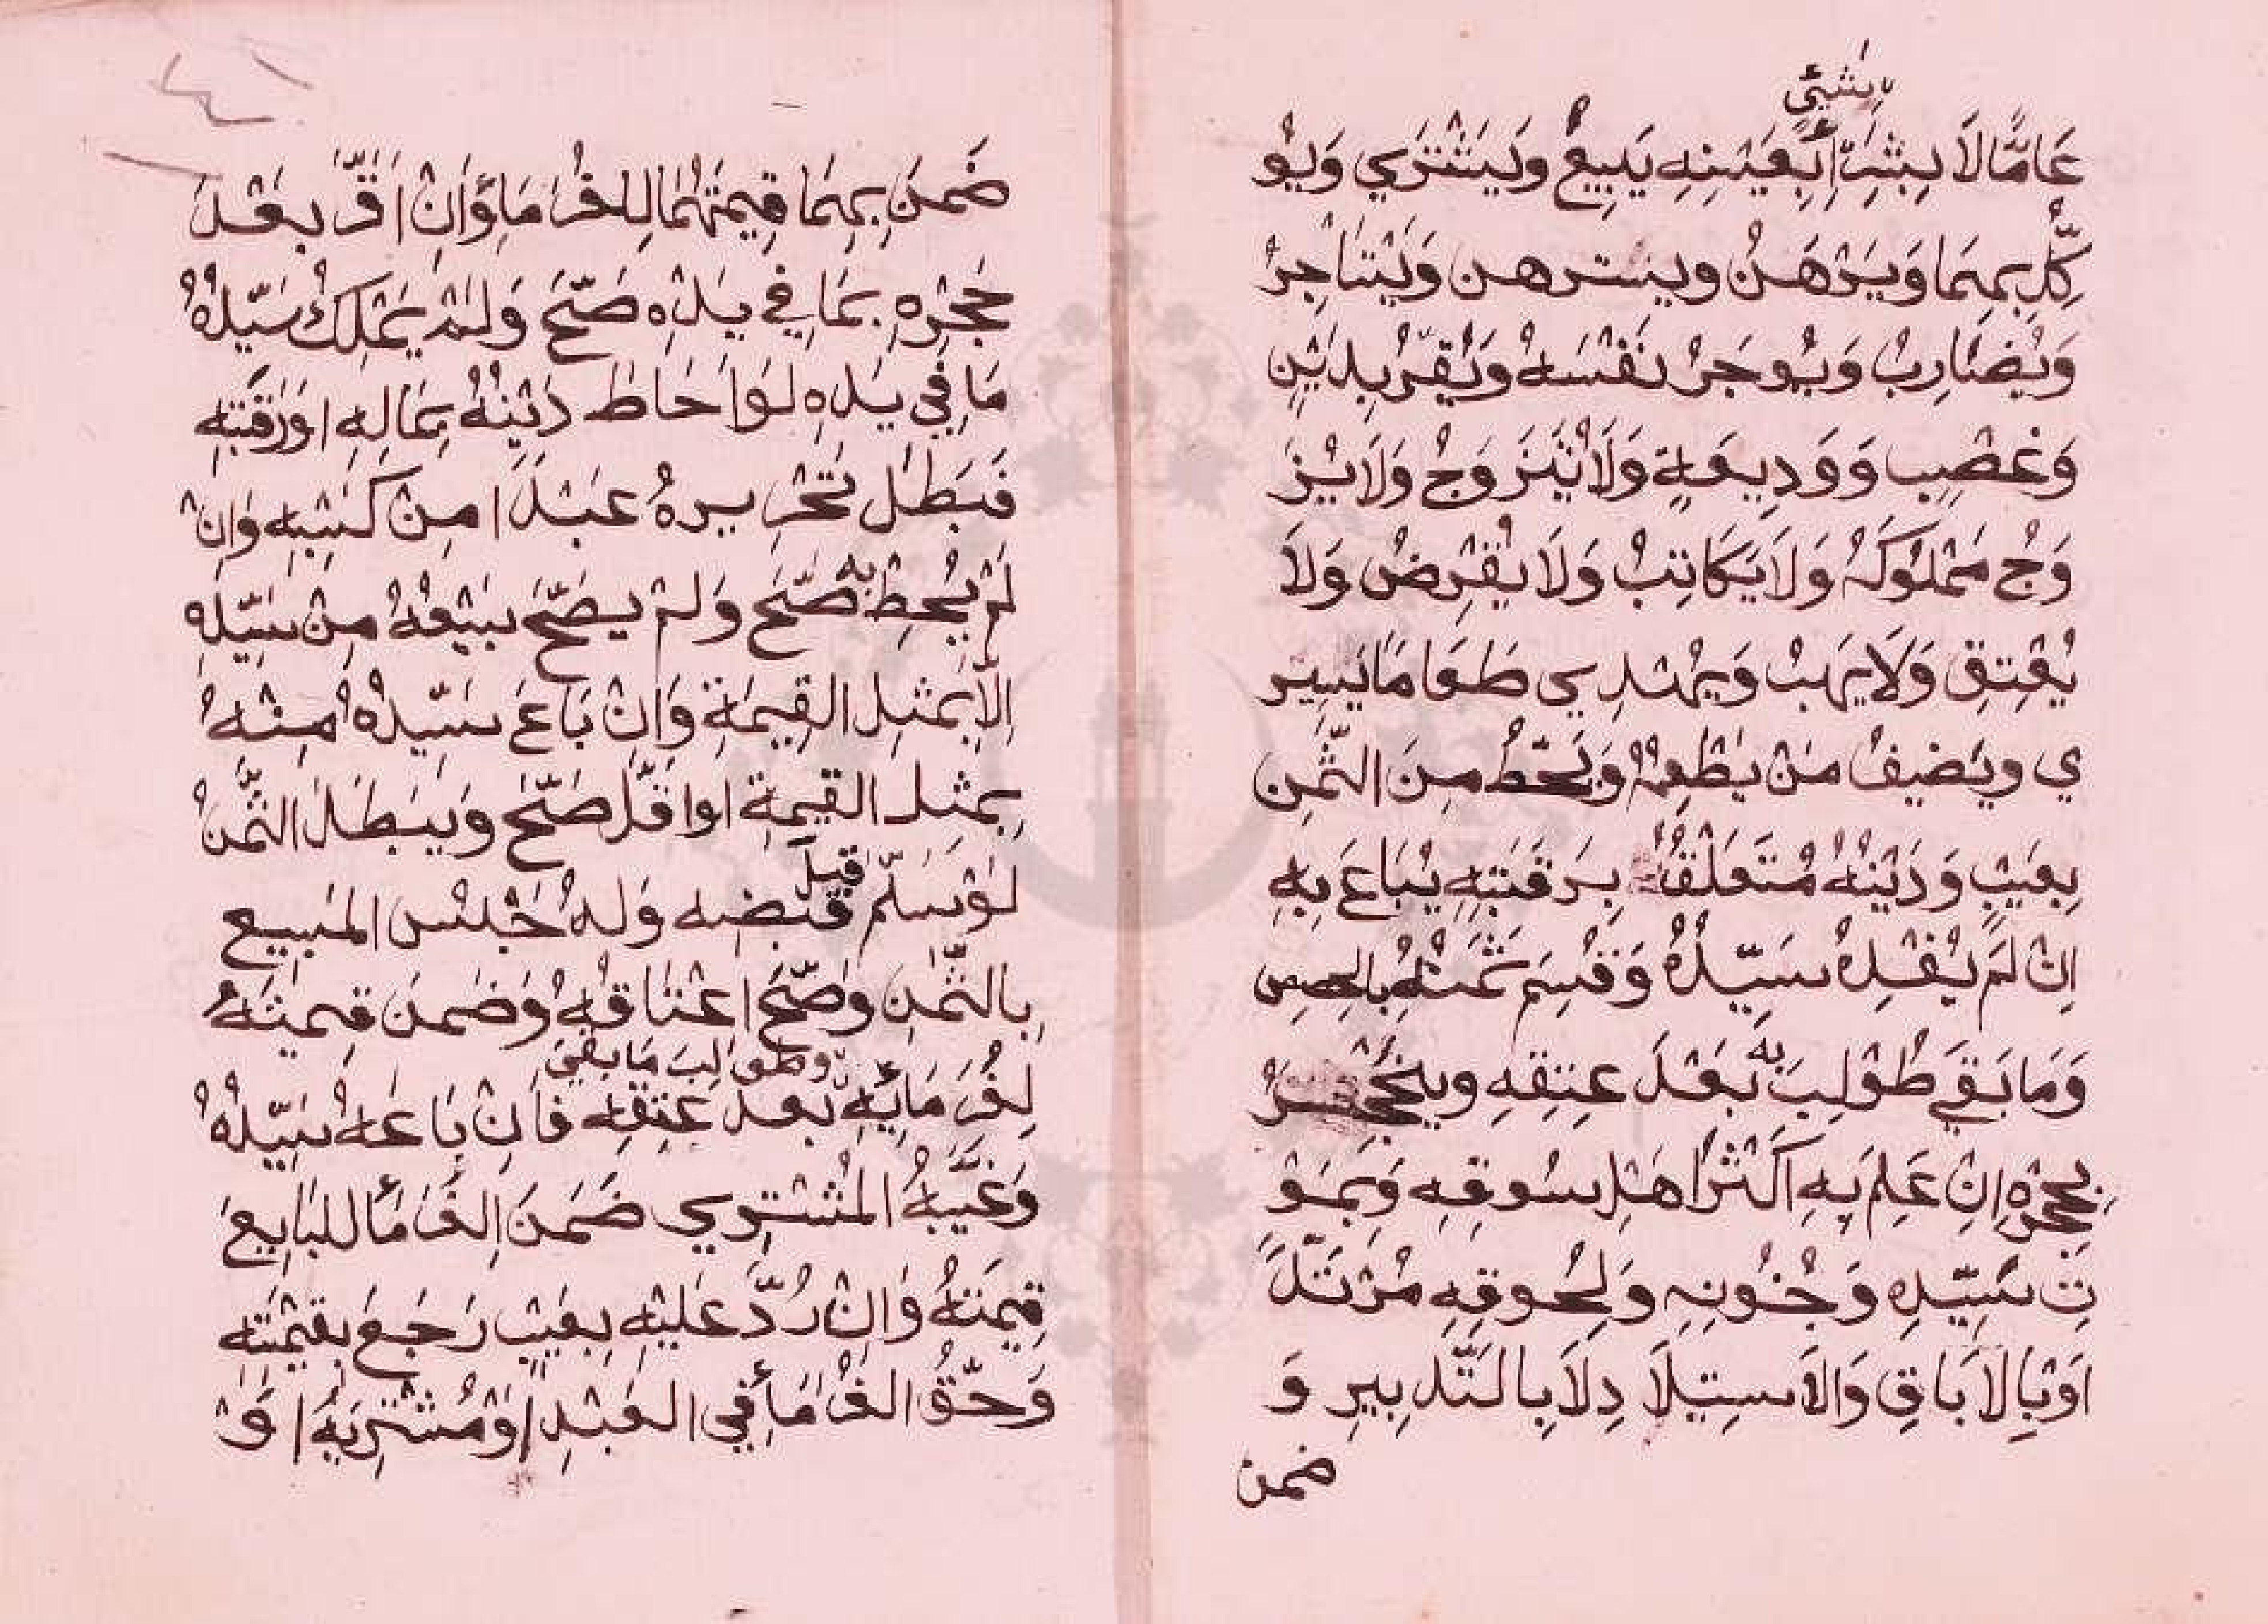 بشيئ
عَامًّا لَا بِشِرَأِ بِعَيْنِهِ يَبِيعُ وَيَشْتَرِي وَيُو
كِّلُ بِهِمَا وَيَرْهَنُ ويسترهن وَيَسْتَاجِرُ
وَيُضَارِبُ وَيُوجِرُ نَفْسَهُ وَيُقِرُّ بِدَيْنٍ
وَغَصْبٍ وَوَدِيعَةٍ وَلَا يَتَزَوَجُ وَلَا يُزَ
وَجُ مَمْلُوكَهُ وَلَا يُكَاتِبُ وَلَا يُقْرِضُ وَلَا
يُعْتِقُ وَلَا يَهَبُ وَيُهْدِي طَعَامًا يَسِيرً
ي ويَضيفُ مَنْ يُطْعِمُهُ وَيَحُطُّ مِنَ الثَّمَنِ
بِعَيْبٍ وَدَيْنُهُ مُتَعَلِّقٌ بِرَقَبَتِهِ يُبَاعَ بِهِ
اِنْ لَمْ يُفْدِهُ سَيِّدُهُ وَقُسِمَ ثَمَنُهُ بِالحِصَصِ
وَمَا بَقَيَ طُوْلِبَ بِهِ بَعْدَ عِتِقِهِ ويَنْحَجِرُ
بِحَجْرِهِ اِنْ عَلِمَ بِهِ اَكْثَرُ اَهْلِ سُوقِهِ وَبِمَوْ
تِ سَيِّدِهِ وَجُنُونِهِ وَلِحُوقِهِ مُرْتَدًّا
اَوْ بِالاَبَاقِ وَالاَسِتِيْلَادِ لَا بِالتَّدْبِيرِ وَ
ضمن
ضَمِنَ بِهِمَا قِيمَتَهُمَا لِلغُرَمَاءِ وَاِنْ اَقَرَّ بَعْدَ
حَجْرِهِ بِمَا فِي يَدِهِ صَحَّ وَلَمْ يَمْلِكْ سَيِّدُهُ
مَا فِي يَدِهِ لَوْ اَحَاطَ دَيْنُهُ بِمَالِهِ اوْرَقَبَتِهِ
فَبَطَلَ تَحْرِيرهُ عَبْدًا مِنْ كَسْبِهِ وَاِنْ
لَمْ يُحِطْ بِهِ صَحَّ وَلَمْ يَصِحَّ بَيْعُهُ مِنْ سَيِّدِهِ
اِلَّا بِمَثِلِ القِيمَةِ وَاِنْ بَاعَ سَيِّدُهُ مِنْهُ
بِمثلِ القيمةِ اواَقَلَّ صَحَّ وَيَبْطَلُ الثَّمَنُ
لَوْ سَلَّمَ قبل قَبْضِه وَلهُ حَبْسُ المَبِيعِ
بِالثَّمَنِ وَصَحَّ اِعْتَاقُهُ وَضَمِنَ قِيمَتَهُ
وطولِبَ مَا بقيَ
لِغُرَمَائِهِ بَعْدَ عِتقِهِ فَاِنْ بَاعَهُ سَيِّدُهُ
وَغَيَّبَهُ المُشْتَرِي ضَمَنَ الغُرَمَأُ للبَايِعَ
قِيمَتَهُ وَاِنْ رُدَّ عَلَيْهِ بِعَيْبٍ رَجَعَ بِقِيْمَتِهِ
وَحَقُّ الغُرَمَأِ فِي العَبْدِ اَوْ مُشْتَرِيَهُ اَوْ